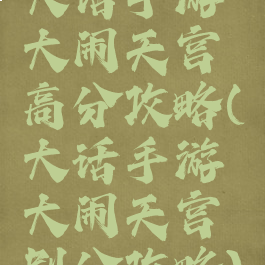 大话手游
大闹天宫
高分攻略(
大话手游
大闹天宫
刷分攻略)